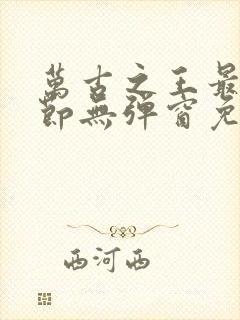 萬古之王最
節無彈窗免
西河西